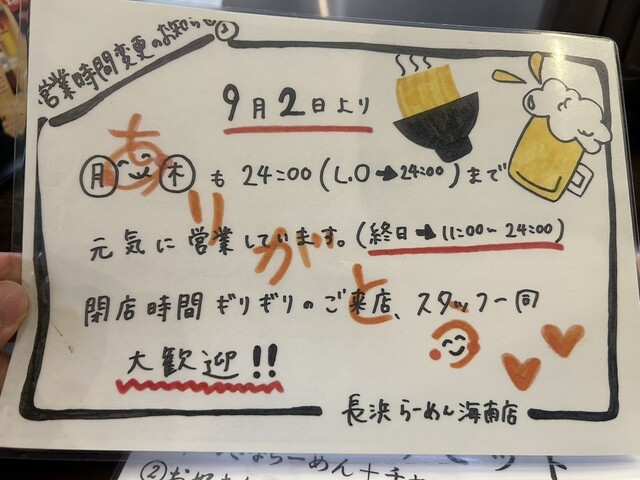 営業時間変更のお知らせ①
9月2日より
月〜木も24:00(L.O→24:00)まで
元気に営業しています。(終日→11:00~24:00)
閉店時間ギリギリのご来店、スタッフ一同
大歓迎!!
ありがと
長浜らーめん海南店
らーめん+チ
②